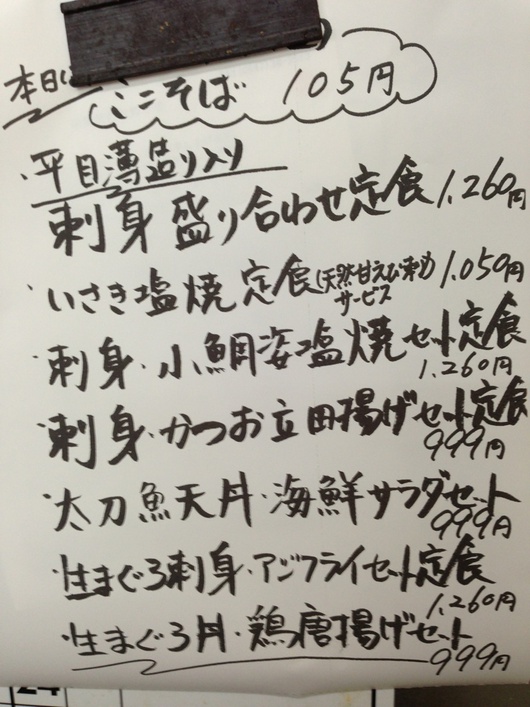 本日
ミニそば 105円
・平目薄造り入り
刺身盛り合わせ定食 1,260円
・いさき塩焼定食(天然甘えび刺り)サービス 1,050円
・刺身・小鯛姿塩焼セット定食
1,260円
・刺身・かつお立田揚げセット定食
999円
・太刀魚天丼・海鮮サラダセット
999円
・生まぐろ刺身・アジフライセット定食
1,260円
・生まぐろ丼・鶏唐揚げセット
999円
24